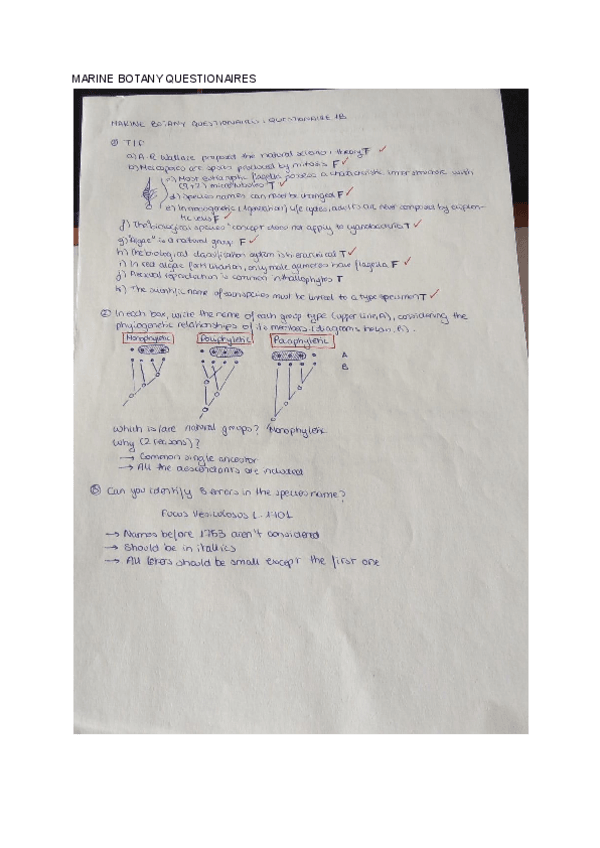 MARINE BOTANY QUESTIONAIRES
MARINE BOTANY QUESTIONAIRES: QUESTIONAIRE 1B
① T/F
a) A.R. Wallace proposed the natural selection theory F ✓
b) Meiospores are spores produced by mitosis F ✓
c) Most eukaryotic flagella possess a characteristic inner structure with
(9+2) microtubules T ✓
d) Species names can never be changed F ✓
e) In monogenetic life cycles, adults are never composed by
nucleus F ✓
f) The "biological species" concept does not apply to cyanobacteria T ✓
g) "Algae" is a natural group F ✓
h) The biological classification system is hierarchical T ✓
i) In red algae fertilization, only male gametes have flagella F ✓
j) Asexual reproduction is common in thallophytes T
k) The scientific name of each species must be linked to a type specimen T ✓
② In each box, write the name of each group type (upper line, A), considering the
phylogenetic relationships of its members (diagrams below, B).
Monophyletic Poliphyletic Paraphyletic
A
B
Which is/are natural groups? Monophyletic
Why (2 reasons)?
→ Common single ancestor
→ All the descendants are included
③ Can you identify 3 errors in the species name?
Fucus Vesiculosus L. 1701
→ Names before 1753 aren't considered
→ Should be in itallics
→ All letters should be small except the first one